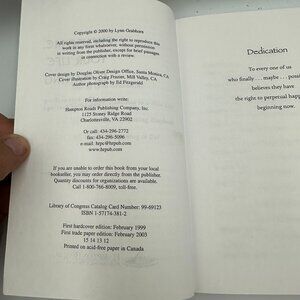 Copyright © 2000 by Lynn Grabhorn
All rights reserved, including the right to reproduce this
work in any form whatsoever, without permission
in writing from the publisher, except for brief passages
in connection with a review.
Cover design by Douglas Oliver Design Office, Santa Monica, CA
Cover illustration by Craig Frazier, Mill Valley, CA
Author photograph by Ed Fitzgerald
For information write:
Hampton Roads Publishing Company, Inc.
1125 Stoney Ridge Road
Charlottesville, VA 22902
Or call: 434-296-2772
fax: 434-296-5096
e-mail: hrpc@hrpub.com
www.hrpub.com
If you are unable to order this book from your local
bookseller, you may order directly from the publisher.
Quantity discounts for organizations are available.
Call 1-800-766-8009, toll-free.
Library of Congress Catalog Card Number: 99-69123
ISBN 1-57174-381-2
First hardcover edition: February 1999
First trade paper edition: February 2003
15 14 13 12
Printed on acid-free paper in Canada
Dedication
To every one of us
who finally . . . maybe . . . possi
believes they have
the right to perpetual happ
beginning now.